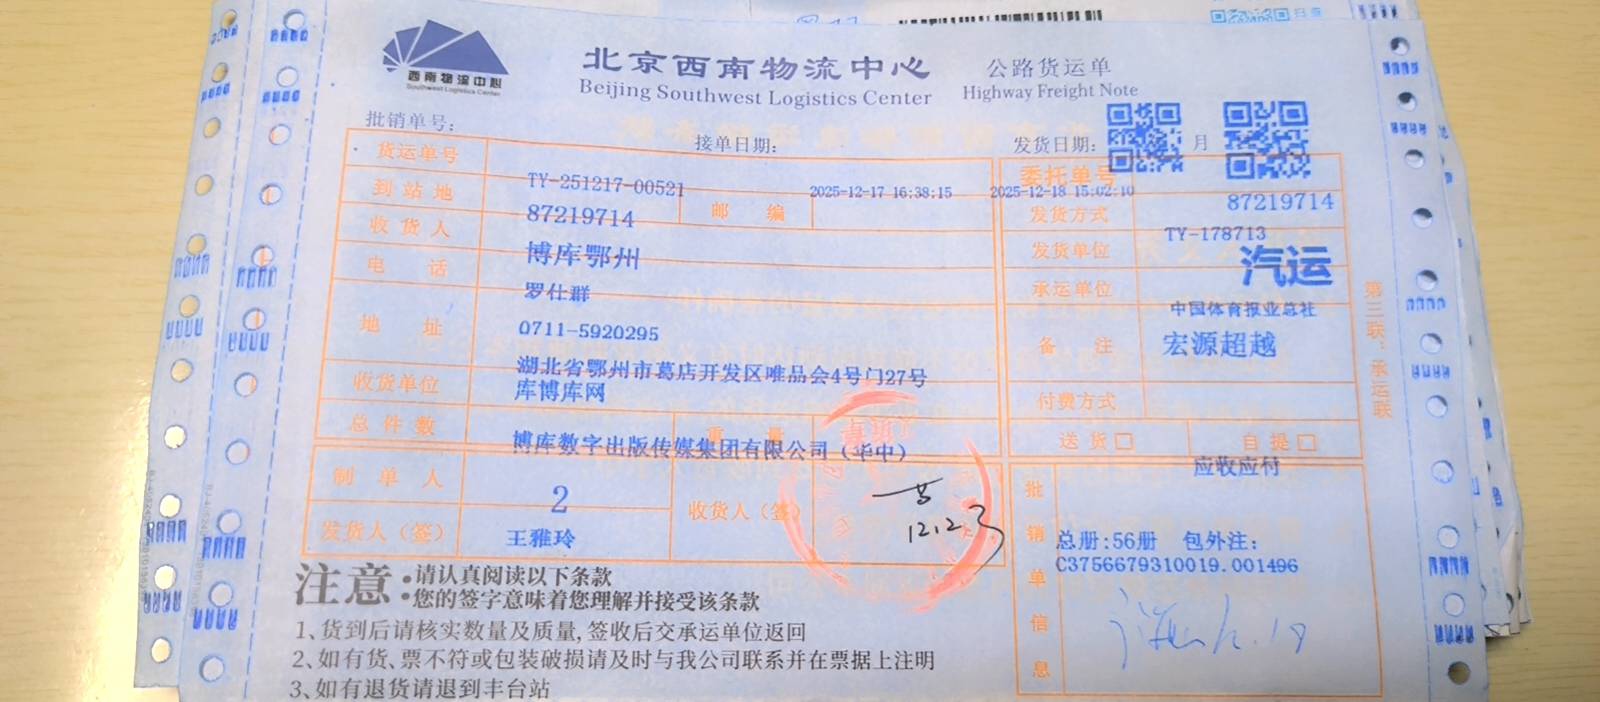 西南物流中心
Southwest Logistics Center
北京西南物流中心
Beijing Southwest Logistics Center
公路货运单
Highway Freight Note
批销单号:
接单日期:
发货日期:
月
货运单号
TY-251217-00521
2025-12-17 16:38:15
2025-12-18 15:02:10
委托单号
87219714
到站地
87219714
邮 编
发货方式
TY-178713
收货人
博库鄂州
发货单位
汽运
电 话
罗仕群
承运单位
中国体育报业总社
地 址
0711-5920295
备 注
宏源超越
湖北省鄂州市葛店开发区唯品会4号门27号
库博库网
收货单位
付费方式
总件数
重 量
博库数字出版传媒集团有限公司（华中）
送货□
自提□
应收应付
制单人
2
收货人（签）
12.23
发货人（签）
王雅玲
批销单信息
总册:56册 包外注:
C3756679310019.001496
第三联：承运联
注意:请认真阅读以下条款
您的签字意味着您理解并接受该条款
1、货到后请核实数量及质量,签收后交承运单位返回
2、如有货、票不符或包装破损请及时与我公司联系并在票据上注明
3、如有退货请退到丰台站